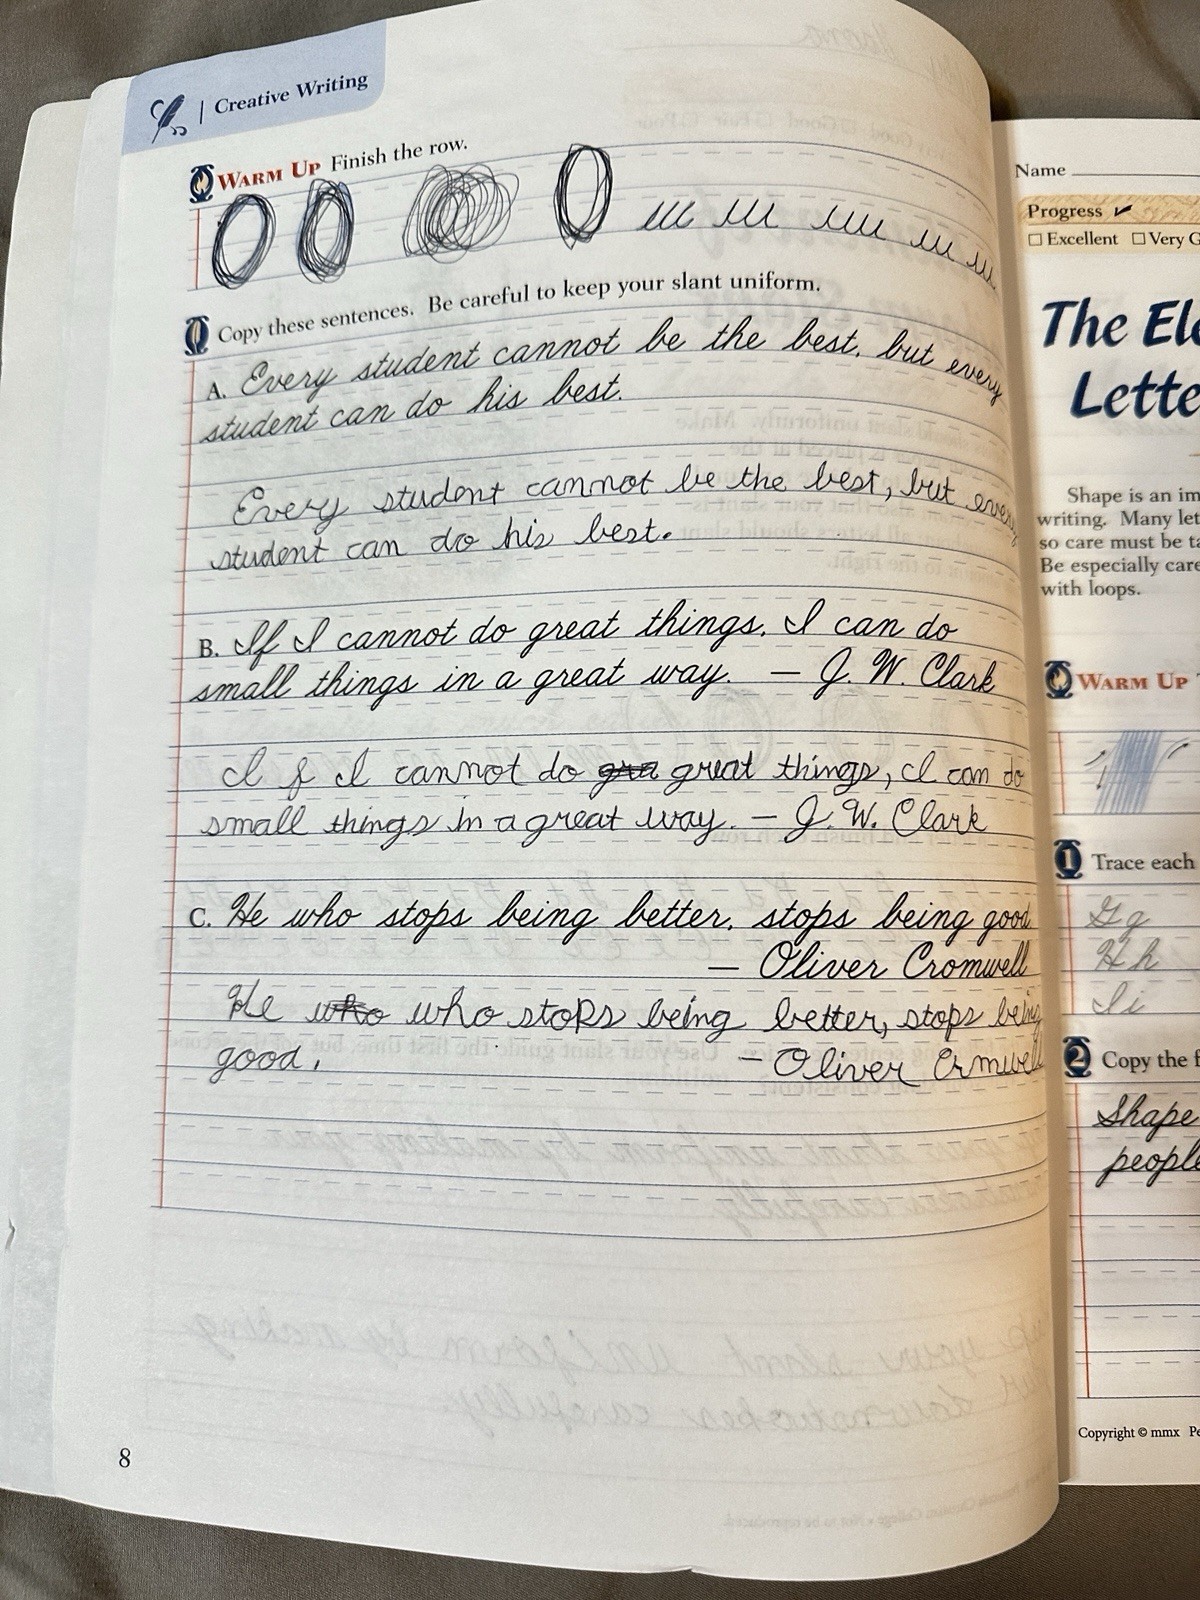 Creative Writing
WARM UP Finish the row.
Copy these sentences. Be careful to keep your slant uniform.
A. Every student cannot be the best, but every
student can do his best.
Every student cannot be the best, but every
student can do his best.
B. If I cannot do great things, I can do
small things in a great way. — J. W. Clark
If I cannot do gra great things, I can do
small things in a great way. – J. W. Clark
C. He who stops being better, stops being good
— Oliver Cromwell
He who who stops being better, stops being
good. – Oliver Crmwell
8
Name
Progress ✓
☐ Excellent ☐ Very G
The Ele
Lette
Shape is an im
writing. Many let
so care must be ta
Be especially care
with loops.
WARM UP
1 Trace each
G g
H h
I i
2 Copy the f
Shape
people
Copyright © mmx Pe